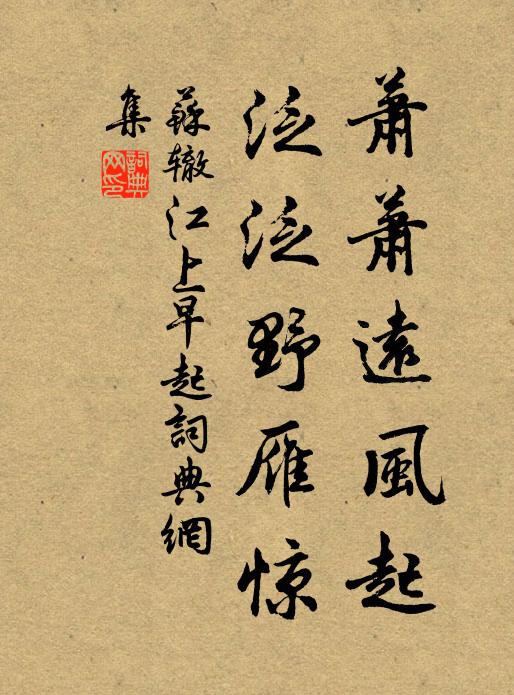 蕭蕭遠風起
泛泛野雁惊
蘇辙江上早起詞典網
集
詞典
网印